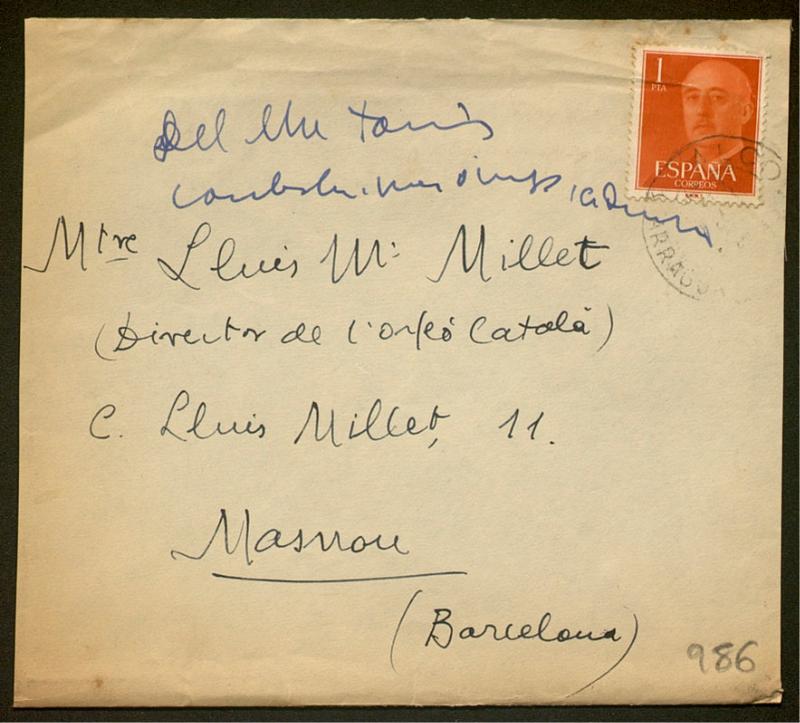 1
PTA
ESPAÑA
CORREOS
Del Mtre
Mtre Lluis Mª Millet
(Director de l'orfeó Català)
C. Lluis Millet, 11.
Masnou
(Barcelona)
986